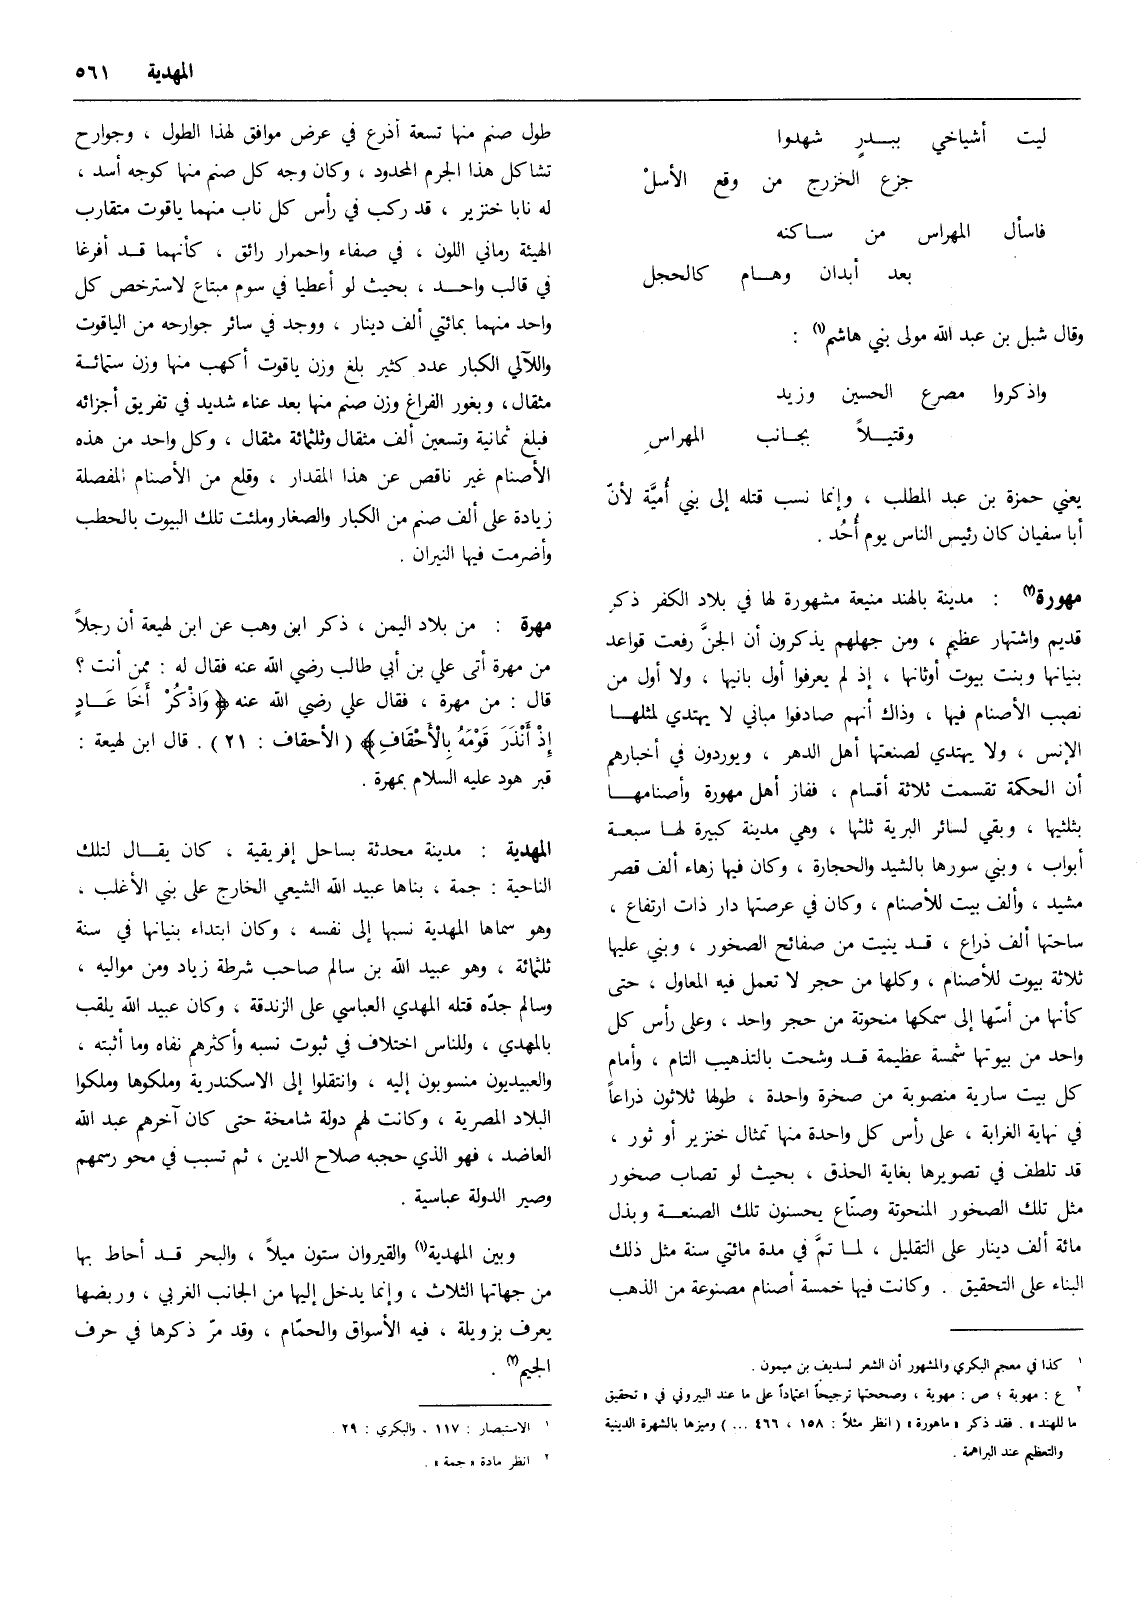 المهدية ٥٦١
ليت أشياخي ببـــدرٍ شهدوا
جزع الخزرج من وقع الأسلْ
فاسأل المهراس من ساكنه
بعد أبدان وهام كالحجل
وقال شبل بن عبد الله مولى بني هاشم(١) :
واذكروا مصرع الحسين وزيد
وقتيلاً بجانب المهراسِ
يعني حمزة بن عبد المطلب ، وإنما نسب قتله إلى بني أُميَّة لأنّ
أبا سفيان كان رئيس الناس يوم أُحُد .
مهورة(٢) : مدينة بالهند منيعة مشهورة لها في بلاد الكفر ذكر
قديم واشتهار عظيم ، ومن جهلهم يذكرون أن الجنَّ رفعت قواعد
بنيانها وبنت بيوت أوثانها ، إذ لم يعرفوا أول بانيها ، ولا أول من
نصب الأصنام فيها ، وذاك أنهم صادفوا مباني لا يهتدي لمثلهـا
الإنس ، ولا يهتدي لصنعتها أهل الدهر ، ويوردون في أخبارهم
أن الحكمة تقسمت ثلاثة أقسام ، ففاز أهل مهورة وأصنامهـا
بثلثيها ، وبقي لسائر البرية ثلثها ، وهي مدينة كبيرة لهـا سبعـة
أبواب ، وبني سورها بالشيد والحجارة ، وكان فيها زهاء ألف قصر
مشيد ، وألف بيت للأصنام ، وكان في عرصتها دار ذات ارتفاع ،
ساحتها ألف ذراع ، قـد ينيت من صفائح الصخور ، وبني عليها
ثلاثة بيوت للأصنام ، وكلها من حجر لا تعمل فيه المعاول ، حتى
كأنها من أسّها إلى سمكها منحوتة من حجر واحد ، وعلى رأس كل
واحد من بيوتها شمسة عظيمة قـد وشحت بالتذهيب التام ، وأمام
كل بيت سارية منصوبة من صخرة واحدة ، طولها ثلاثون ذراعاً
في نهاية الغرابة ، على رأس كل واحدة منها تمثال خنزير أو ثور ،
قد تلطف في تصويرها بغاية الحذق ، بحيث لو تصاب صخور
مثل تلك الصخور المنحوتة وصنّاع يحسنون تلك الصنعـة وبذل
مائة ألف دينار على التقليل ، لمـا تمَّ في مدة مائتي سنة مثل ذلك
البناء على التحقيق . وكانت فيها خمسة أصنام مصنوعة من الذهب
١ كذا في معجم البكري والمشهور أن الشعر لسديف بن ميمون .
٢ ع : مهوبة ؛ ص : مهوية ، وصححتها ترجيحاً اعتماداً على ما عند البيروني في « تحقيق
ما للهند » . فقد ذكر « ماهورة » ( انظر مثلاً : ١٥٨ ، ٤٦٦ ... ) وميزها بالشهرة الدينية
والتعظيم عند البراهمة .
طول صنم منها تسعة أذرع في عرض موافق لهذا الطول ، وجوارح
تشاكل هذا الجرم المحدود ، وكان وجه كل صنم منها كوجه أسد ،
له نابا خنزير ، قد ركب في رأس كل ناب منهما ياقوت متقارب
الهيئة رماني اللون ، في صفاء واحمرار رائق ، كأنهما قـد أفرغا
في قالب واحـد ، بحيث لو أعطيا في سوم مبتاع لاسترخص كل
واحد منهما بمائتي ألف دينار ، ووجد في سائر جوارحه من الياقوت
واللآلي الكبار عدد كثير بلغ وزن ياقوت أكهب منها وزن ستمائـة
مثقال، وبغور الفراغ وزن صنم منها بعد عناء شديد في تفريق أجزائه
فبلغ ثمانية وتسعين ألف مثقال وثلثمائة مثقال ، وكل واحد من هذه
الأصنام غير ناقص عن هذا المقدار ، وقلع من الأصنام المفصلة
زيادة على ألف صنم من الكبار والصغار وملئت تلك البيوت بالحطب
وأضرمت فيها النيران .
مهرة : من بلاد اليمن ، ذكر ابن وهب عن ابن لهيعة أن رجلاً
من مهرة أتى علي بن أبي طالب رضي الله عنه فقال له : ممن أنت ؟
قال : من مهرة ، فقال علي رضي الله عنه ﴿ وَاذْكُرْ أَخَا عَـادٍ
إِذْ أَنْذَرَ قَوْمَهُ بِالْأَحْقَافِ ﴾ ( الأحقاف : ٢١ ) . قال ابن لهيعة :
قبر هود عليه السلام بمهرة .
المهدية : مدينة محدثة بساحل إفريقية ، كان يقـال لتلك
الناحية : جمة ، بناها عبيد الله الشيعي الخارج على بني الأغلب ،
وهو سماها المهدية نسبها إلى نفسه ، وكان ابتداء بنيانها في سنة
ثلثمائة ، وهو عبيد الله بن سالم صاحب شرطة زياد ومن مواليه ،
وسالم جدّه قتله المهدي العباسي على الزندقة ، وكان عبيد الله يلقب
بالمهدي ، وللناس اختلاف في ثبوت نسبه وأكثرهم نفاه وما أثبته ،
والعبيديون منسوبون إليه ، وانتقلوا إلى الاسكندرية وملكوها وملكوا
البلاد المصرية ، وكانت لهم دولة شامخة حتى كان آخرهم عبد الله
العاضد ، فهو الذي حجبه صلاح الدين ، ثم تسبب في محو رسمهم
وصير الدولة عباسية .
وبين المهدية(١) والقيروان ستون ميلاً ، والبحر قـد أحاط بها
من جهاتها الثلاث ، وإنما يدخل إليها من الجانب الغربي ، وربضها
يعرف بزويلة ، فيه الأسواق والحمّام ، وقد مرّ ذكرها في حرف
الجيم(٢) .
١ الاستبصار : ١١٧ ، والبكري : ٢٩ .
٢ انظر مادة « جمة » .